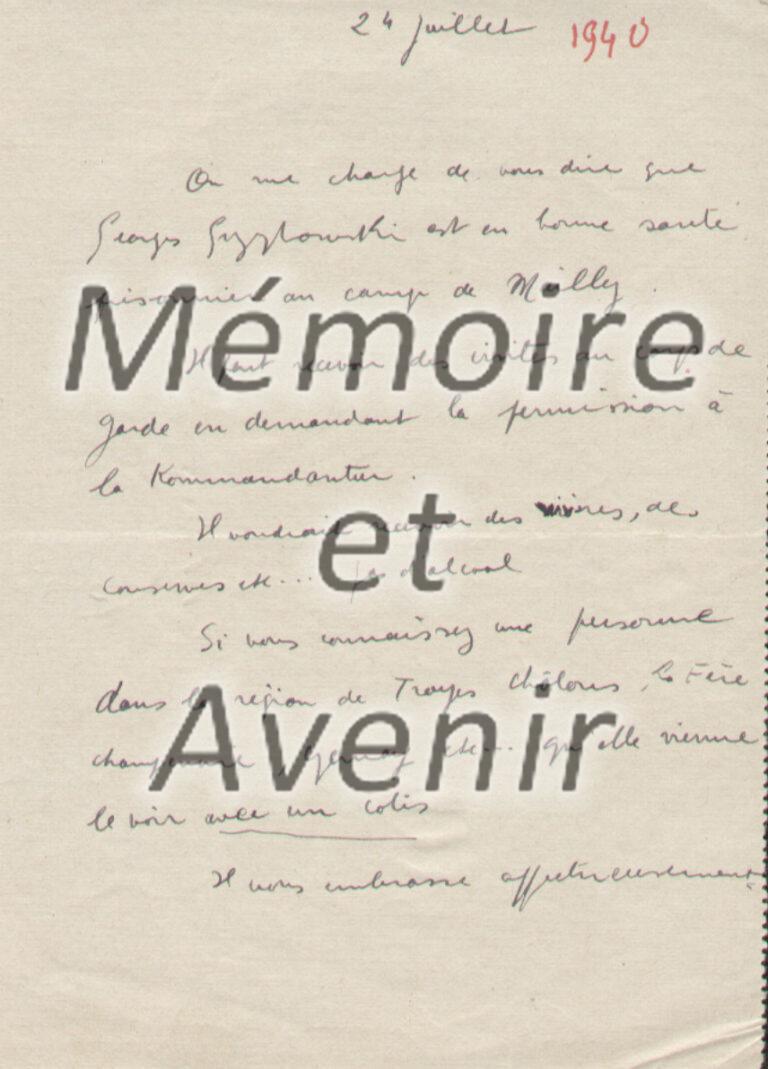 24 juillet 1940
On me charge de vous dire que
Georges Grzybowski est en bonne santé
prisonnier au camp de Mailly.
Il peut recevoir des visites au corps de
garde en demandant la permission à
la Kommandantur.
Il voudrait recevoir des vivres, des
conserves etc... pas d'alcool
Si vous connaissez une personne
dans la région de Troyes Châlons, la Fère
champenoise, Epernay etc... qu'elle vienne
le voir avec un colis
Il vous embrasse affectueusement.
Mémoire
et
Avenir